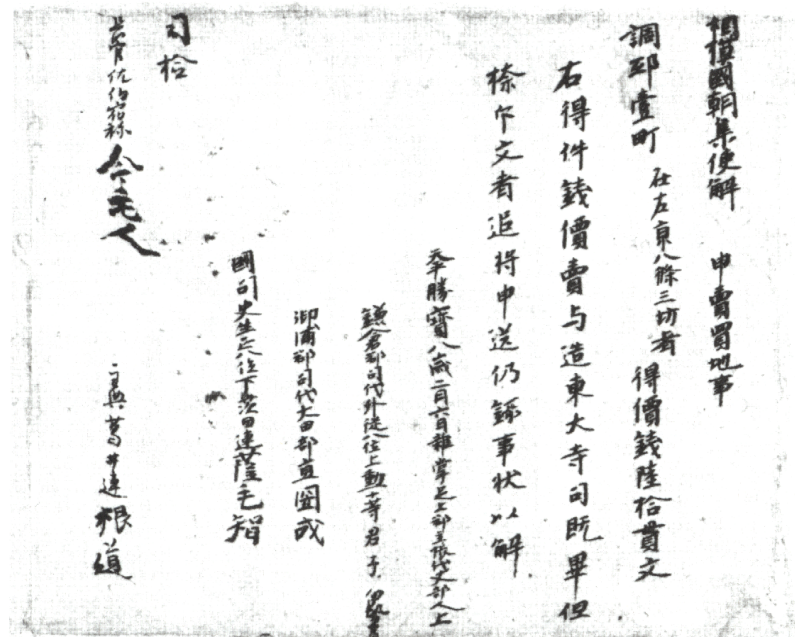 相模國朝集使解 申賣買地事
調邸壹町 在左京八條三坊者 得價錢陸拾貫文
右得件錢價賣与造東大寺司既畢但
券文者追将申送仍錄事状以解
天平勝寶八歳二月六日雜掌足上郡主帳代丈部人上
鎌倉郡司代外従八位上勲十等君子伊勢麻呂
御浦郡司代大田部直圀成
國司史生正八位下茨田連薩毛智
司檢
長官佐伯宿祢今毛人
主典葛井連根道